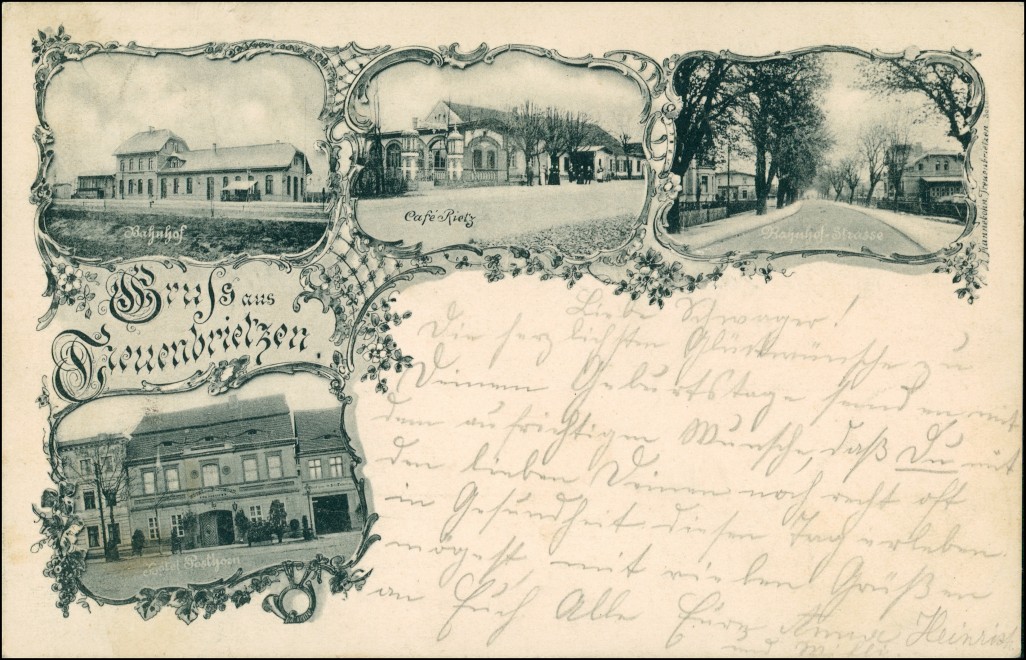 Bahnhof
Café Rietz
Bahnhof-Strasse
Gruss aus
Treuenbrietzen.
Liebe Schwager!
Die herzlichsten Glückwünsche zu
Deinem Geburtstage senden mit
dem aufrichtigen Wunsche, daß Du mit
den lieben Deinen noch recht oft
in Gesundheit diesen Tag erleben
mögest mit vielen Grüßen
an Euch Alle Eure Anna Heinrich
und
Hotel